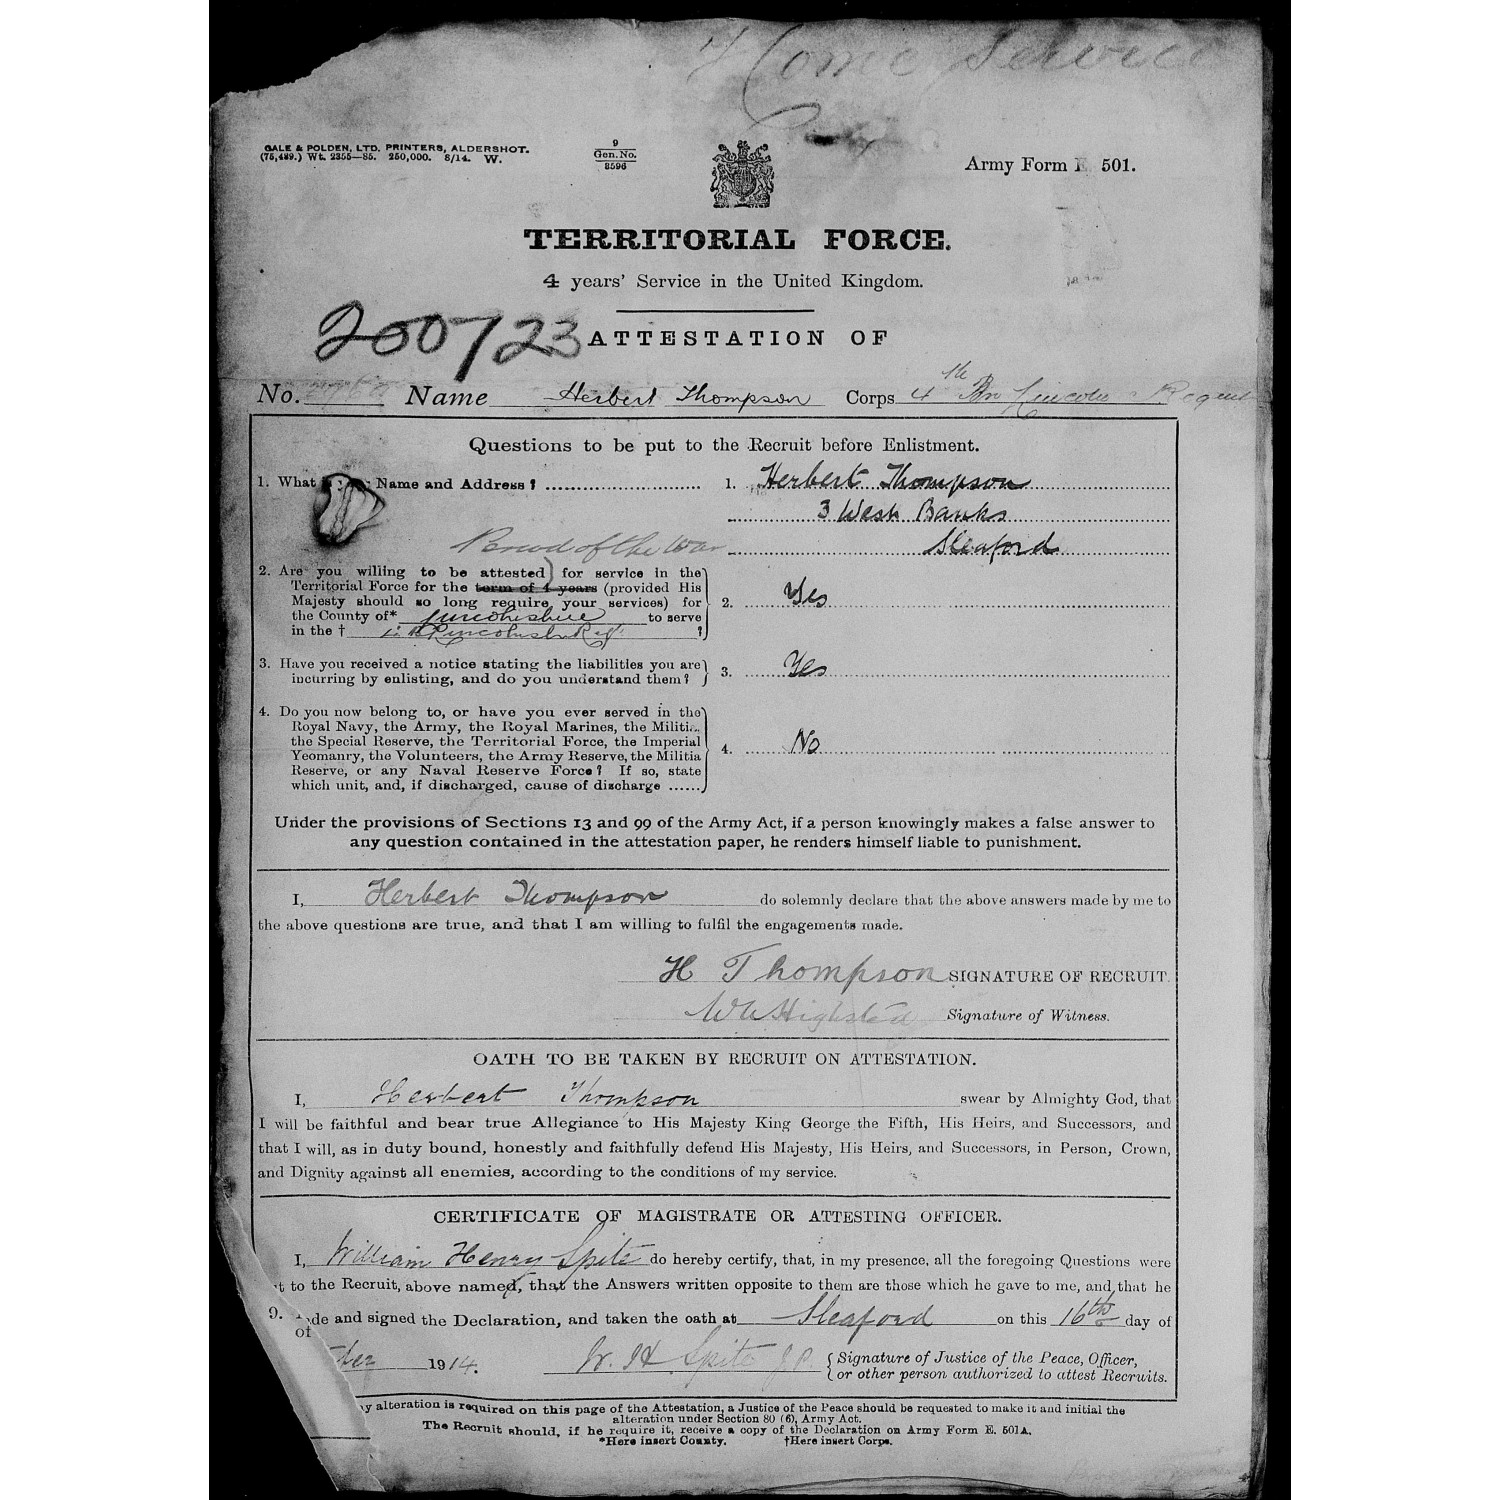 Home Service
GALE & POLDEN, LTD. PRINTERS, ALDERSHOT.
(75,489.) Wt. 2355—85. 250,000. 8/14. W.
9
Gen. No.
8596
Army Form E. 501.
TERRITORIAL FORCE.
4 years' Service in the United Kingdom.
200723 ATTESTATION OF
No. Name Herbert Thompson Corps 4th Bn Lincoln Regmt
Questions to be put to the Recruit before Enlistment.
1. What Name and Address? 1. Herbert Thompson
3 West Banks
Period of the War Sleaford
2. Are you willing to be attested for service in the
Territorial Force for the term of 4 years (provided His
Majesty should so long require your services) for 2. Yes
the County of* Lincolnshire to serve
in the † Lincolnshire Regt ?
3. Have you received a notice stating the liabilities you are 3. Yes
incurring by enlisting, and do you understand them?
4. Do you now belong to, or have you ever served in the
Royal Navy, the Army, the Royal Marines, the Militia,
the Special Reserve, the Territorial Force, the Imperial 4. No
Yeomanry, the Volunteers, the Army Reserve, the Militia
Reserve, or any Naval Reserve Force? If so, state
which unit, and, if discharged, cause of discharge ......
Under the provisions of Sections 13 and 99 of the Army Act, if a person knowingly makes a false answer to
any question contained in the attestation paper, he renders himself liable to punishment.
I, Herbert Thompson do solemnly declare that the above answers made by me to
the above questions are true, and that I am willing to fulfil the engagements made.
H Thompson SIGNATURE OF RECRUIT.
Signature of Witness.
OATH TO BE TAKEN BY RECRUIT ON ATTESTATION.
I, Herbert Thompson swear by Almighty God, that
I will be faithful and bear true Allegiance to His Majesty King George the Fifth, His Heirs, and Successors, and
that I will, as in duty bound, honestly and faithfully defend His Majesty, His Heirs, and Successors, in Person, Crown,
and Dignity against all enemies, according to the conditions of my service.
CERTIFICATE OF MAGISTRATE OR ATTESTING OFFICER.
I, William Henry Spite do hereby certify, that, in my presence, all the foregoing Questions were
t to the Recruit, above named, that the Answers written opposite to them are those which he gave to me, and that he
9. de and signed the Declaration, and taken the oath at Sleaford on this 16th day of
of
ber 1914. W. H Spite J.P. Signature of Justice of the Peace, Officer,
or other person authorized to attest Recruits.
y alteration is required on this page of the Attestation, a Justice of the Peace should be requested to make it and initial the
alteration under Section 80 (6), Army Act.
The Recruit should, if he require it, receive a copy of the Declaration on Army Form E. 501A.
*Here insert County. †Here insert Corps.